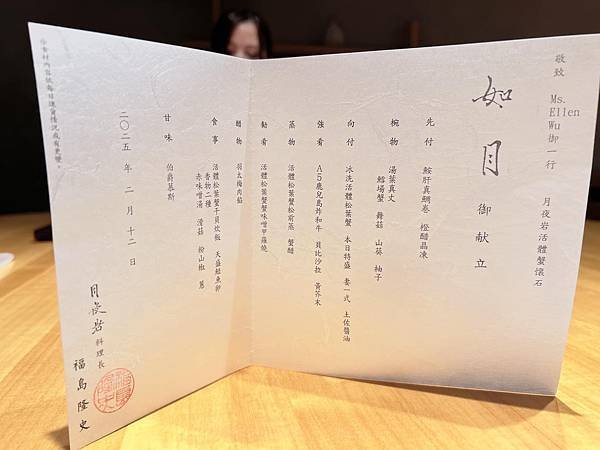 敬致 Ms. Ellen Wu 御一行
月夜岩活體蟹懷石
如月 御献立
先付 鮟肝真鯛卷 橙醋晶凍
椀物 湯葉真丈
鱈場蟹 舞菇 山葵 柚子
向付 冰洗活體松葉蟹 本日特盛 妻一式 土佐醬油
強肴 A5鹿兒島炸和牛 貝比沙拉 黃芥末
蒸物 活體松葉蟹松前蒸 蟹醋
勧肴 活體松葉蟹蟹味噌甲羅燒
醋物 羽太梅肉餡
食事 活體松葉蟹干貝炊飯 天盛鮭魚卵
香物二種
赤味噌湯 滑菇 粉山椒 蔥
甘味 伯爵慕斯
二〇二五年 二月 十二日
月夜岩 料理長
福島隆史
今食材內容依每日進貨情況或有更變。